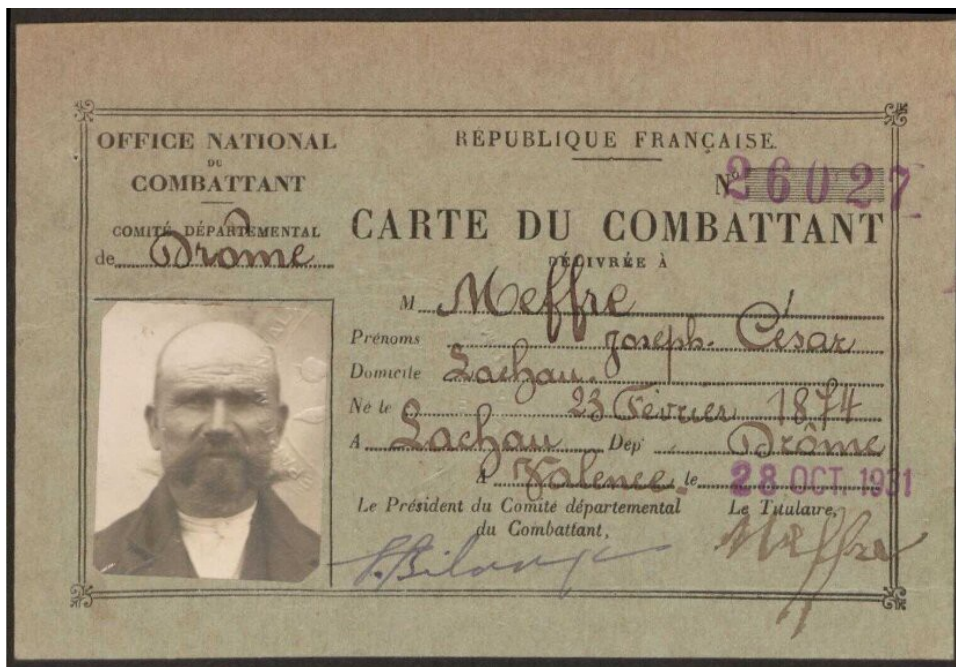 OFFICE NATIONAL
DU
COMBATTANT
COMITÉ DÉPARTEMENTAL
de Drôme
RÉPUBLIQUE FRANÇAISE.
N° 26027
CARTE DU COMBATTANT
DÉLIVRÉE À
M Meffre
Prénoms Joseph. César
Domicile Lachau.
Né le 23 Février 1874
A Lachau Dépt Drôme
A Valence. le 28 OCT. 1931
Le Président du Comité départemental
du Combattant,
Le Titulaire,
Meffre